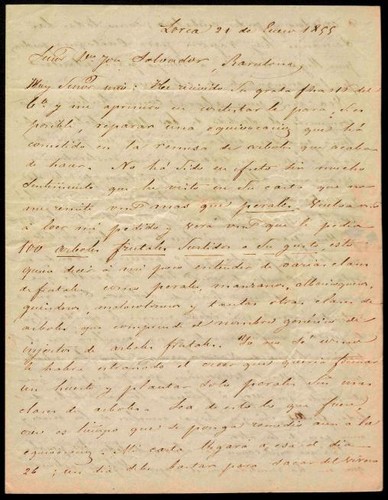 Lorca 21 de Enero 1855
Señor Dn José Salvador, Barcelona,
Muy Señor mio: He recibido su grata fha 15 del
Cte y me apresuro a contestarle para, si es
posible, reparar una equivocacion que há
cometido en la remesa de arboles que acaba
de hacer. No há sido en efecto sin mucho
sentimiento que he visto en su carta que no
me remite vmd mas que perales. Vuelva vmd
á leer mi pedido y vera vmd que le pedia
100 arboles frutales surtidos a su gusto, esto
quiere decir á mi para entender de varias clases
de frutales como perales, manzanos, albaricoques,
guindos, melocotones y tantas otras clases de
arboles que comprende el nombre genérico de
injertos de arboles frutales. Ya me
le habra estrañado el creer que queria formar
un huerto y plantar solo perales sin mas
clases de arboles. Sea de esto lo que fuere
creo es tiempo que se ponga remedio aun á la
equivocacion. Mi carta llegará á esa el dia
26; un dia debe bastar para sacar del vivero